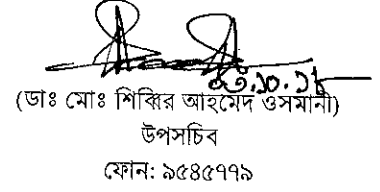 ০৩.১০.১৮
(ডাঃ মোঃ শিব্বির আহমেদ ওসমানী)
উপসচিব
ফোন: ৯৫৪৫৭৭৯